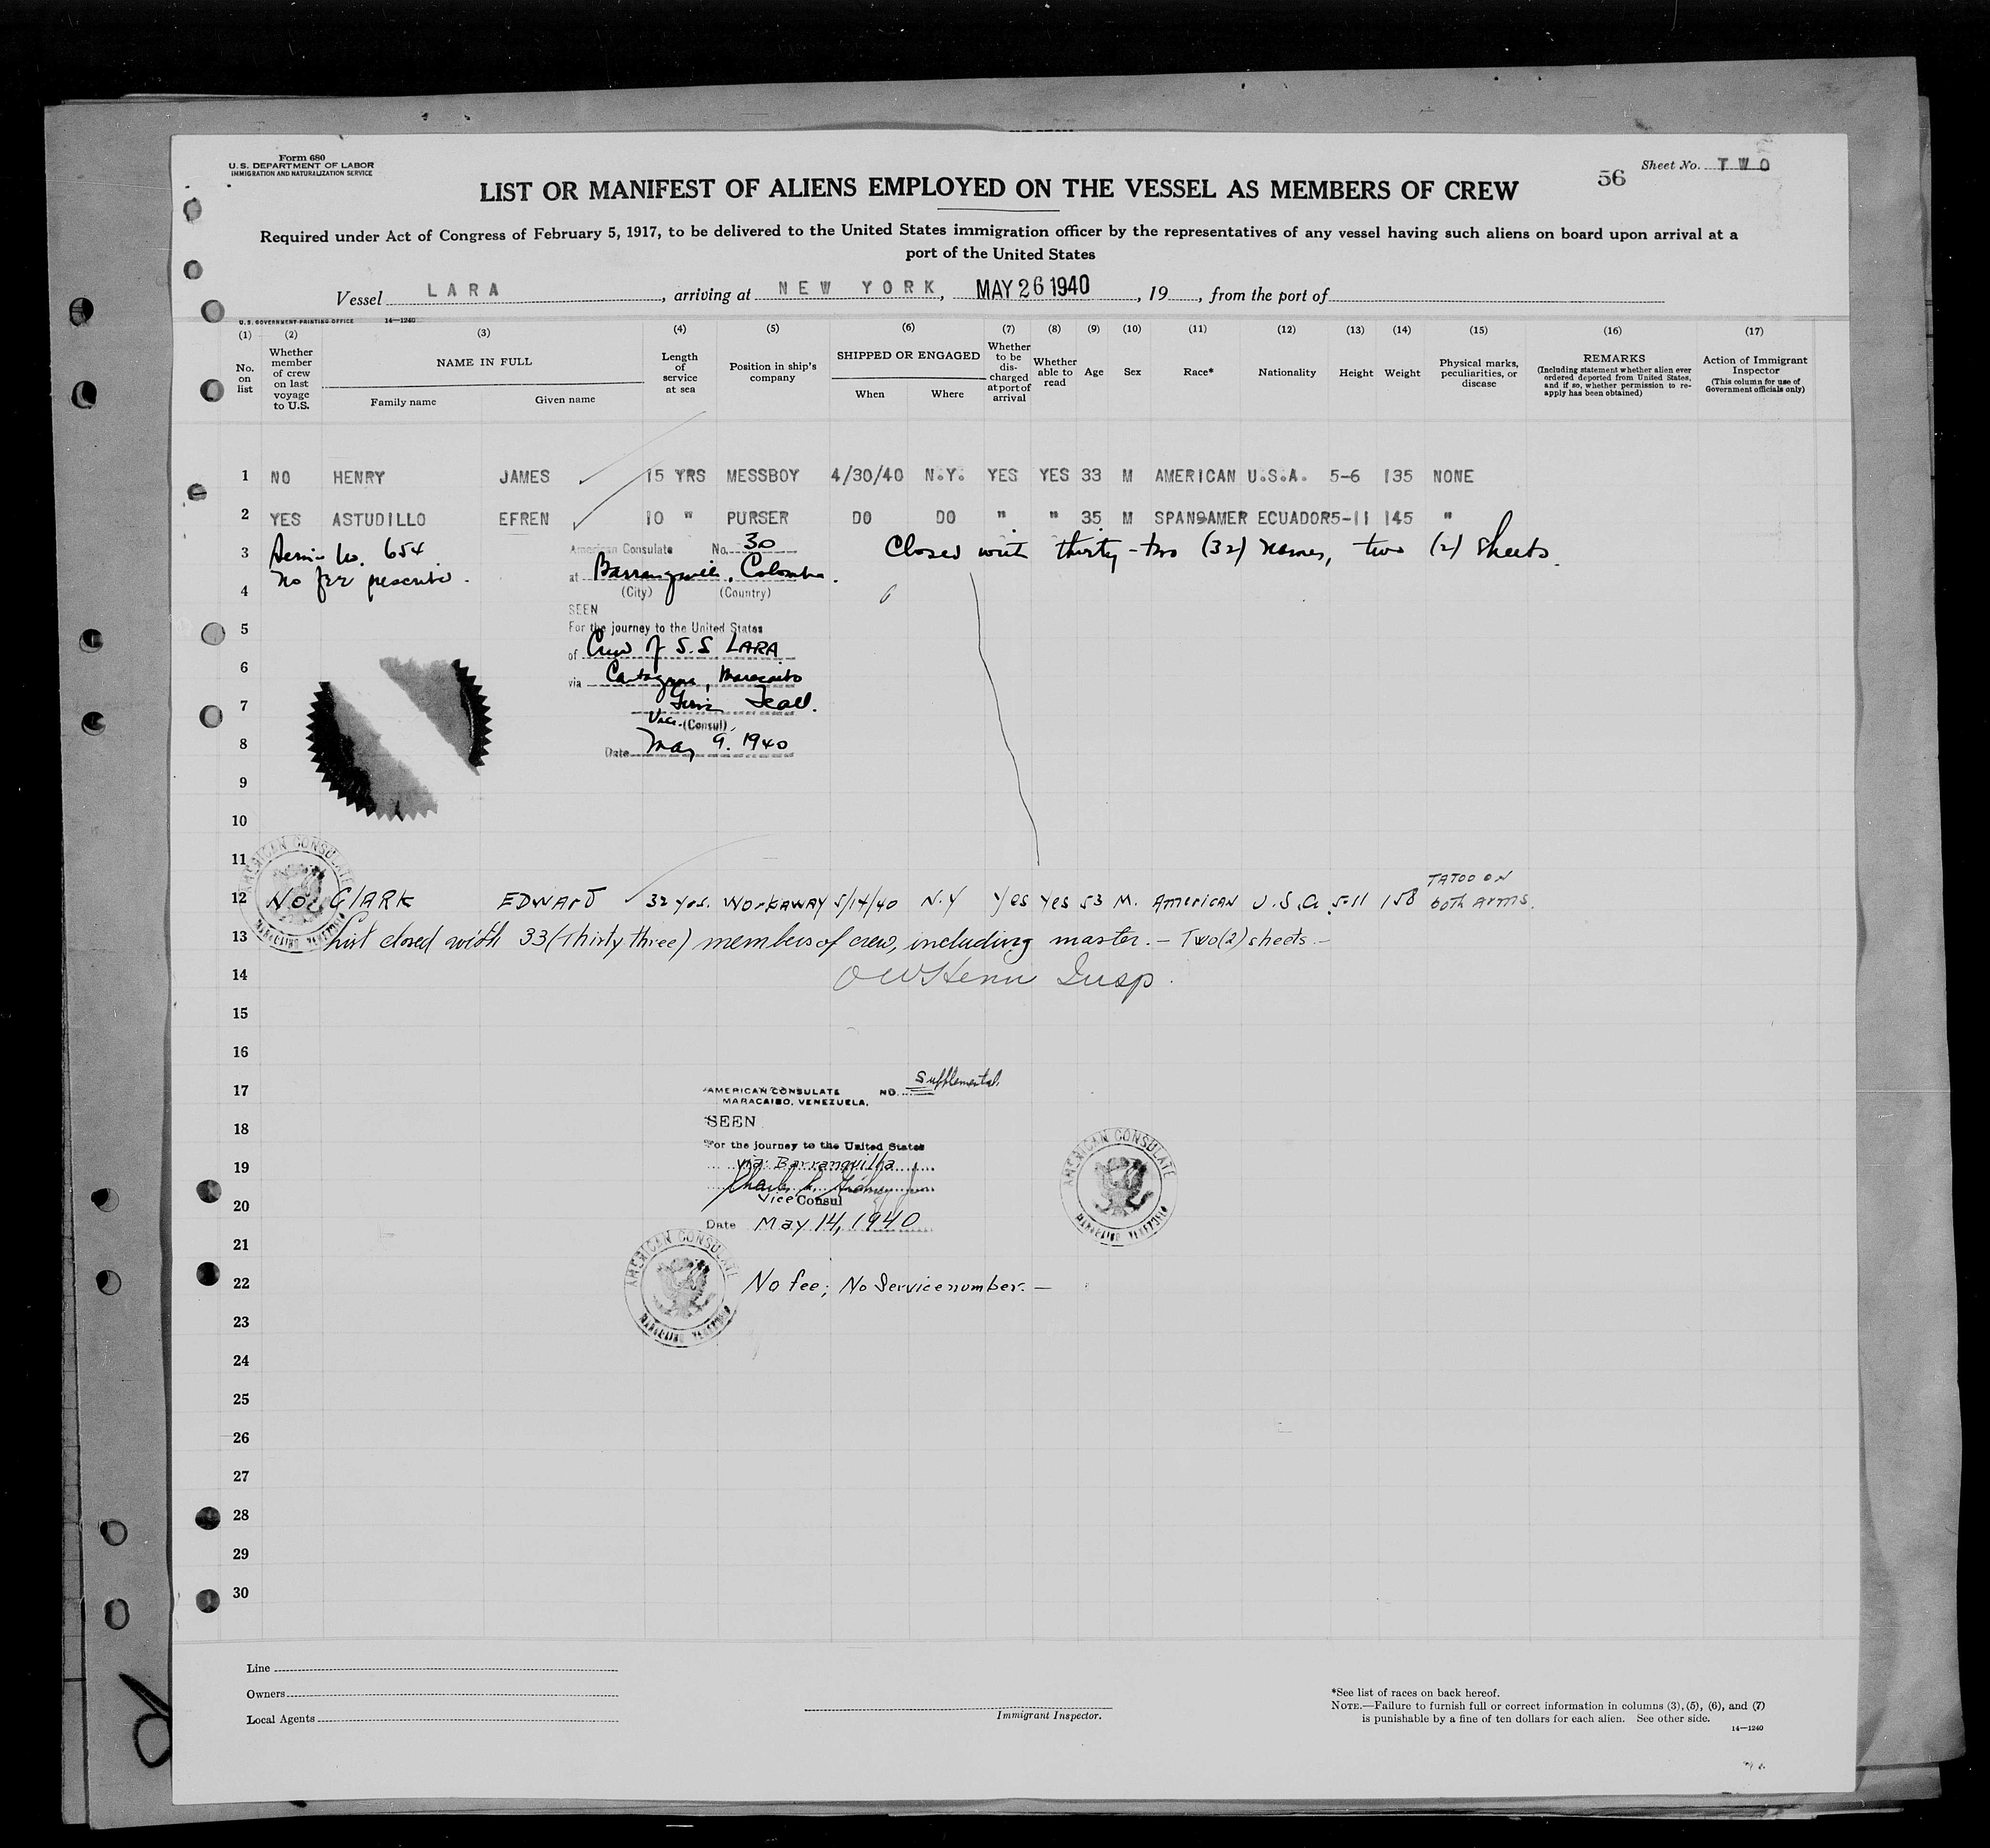 Form 680
U. S. DEPARTMENT OF LABOR
IMMIGRATION AND NATURALIZATION SERVICE
56
Sheet No. TWO
LIST OR MANIFEST OF ALIENS EMPLOYED ON THE VESSEL AS MEMBERS OF CREW
Required under Act of Congress of February 5, 1917, to be delivered to the United States immigration officer by the representatives of any vessel having such aliens on board upon arrival at a
port of the United States
Vessel LARA, arriving at NEW YORK, MAY 26 1940, 19 , from the port of
U. S. GOVERNMENT PRINTING OFFICE 14—1240
(1) (2) (3) (4) (5) (6) (7) (8) (9) (10) (11) (12) (13) (14) (15) (16) (17)
No. on list
Whether member of crew on last voyage to U.S.
NAME IN FULL
Family name Given name
Length of service at sea
Position in ship's company
SHIPPED OR ENGAGED
When Where
Whether to be discharged at port of arrival
Whether able to read
Age
Sex
Race*
Nationality
Height
Weight
Physical marks, peculiarities, or disease
REMARKS
(Including statement whether alien ever ordered deported from United States, and if so, whether permission to re-apply has been obtained)
Action of Immigrant Inspector
(This column for use of Government officials only)
1 NO HENRY JAMES 15 YRS MESSBOY 4/30/40 N.Y. YES YES 33 M AMERICAN U.S.A. 5-6 135 NONE
2 YES ASTUDILLO EFREN 10 " PURSER DO DO " " 35 M SPAN&AMER ECUADOR 5-11 145 "
3 No. 654
No fee prescribed.
American Consulate No. 30
Closed with thirty-two (32) names, two (2) sheets.
at Barranquilla, Colombia.
4 (City) (Country)
SEEN
5 For the journey to the United States
of Crew of S.S. LARA
6
via Cartagena, Maracaibo
7
Vice-(Consul)
8 Date May 9, 1940
9
10
11
AMERICAN CONSULATE
MARACAIBO VENEZUELA
12 No CLARK EDWARD 32 yrs. WORKAWAY 5/14/40 N.Y Yes Yes 53 M. AMERICAN U.S.A. 5-11 158 TATOO ON both arms.
13 List closed with 33 (Thirty three) members of crew, including master. — Two (2) sheets. —
14 Insp.
15
16
17 AMERICAN CONSULATE NO. Supplemental
MARACAIBO, VENEZUELA.
18 SEEN
For the journey to the United States
19 via: Barranquilla
20 Vice Consul
Date May 14, 1940
AMERICAN CONSULATE
MARACAIBO VENEZUELA
21
AMERICAN CONSULATE
22 No fee; No Service number. —
MARACAIBO VENEZUELA
23
24
25
26
27
28
29
30
Line
Owners
Local Agents
Immigrant Inspector.
*See list of races on back hereof.
NOTE.—Failure to furnish full or correct information in columns (3), (5), (6), and (7)
is punishable by a fine of ten dollars for each alien. See other side.
14—1240